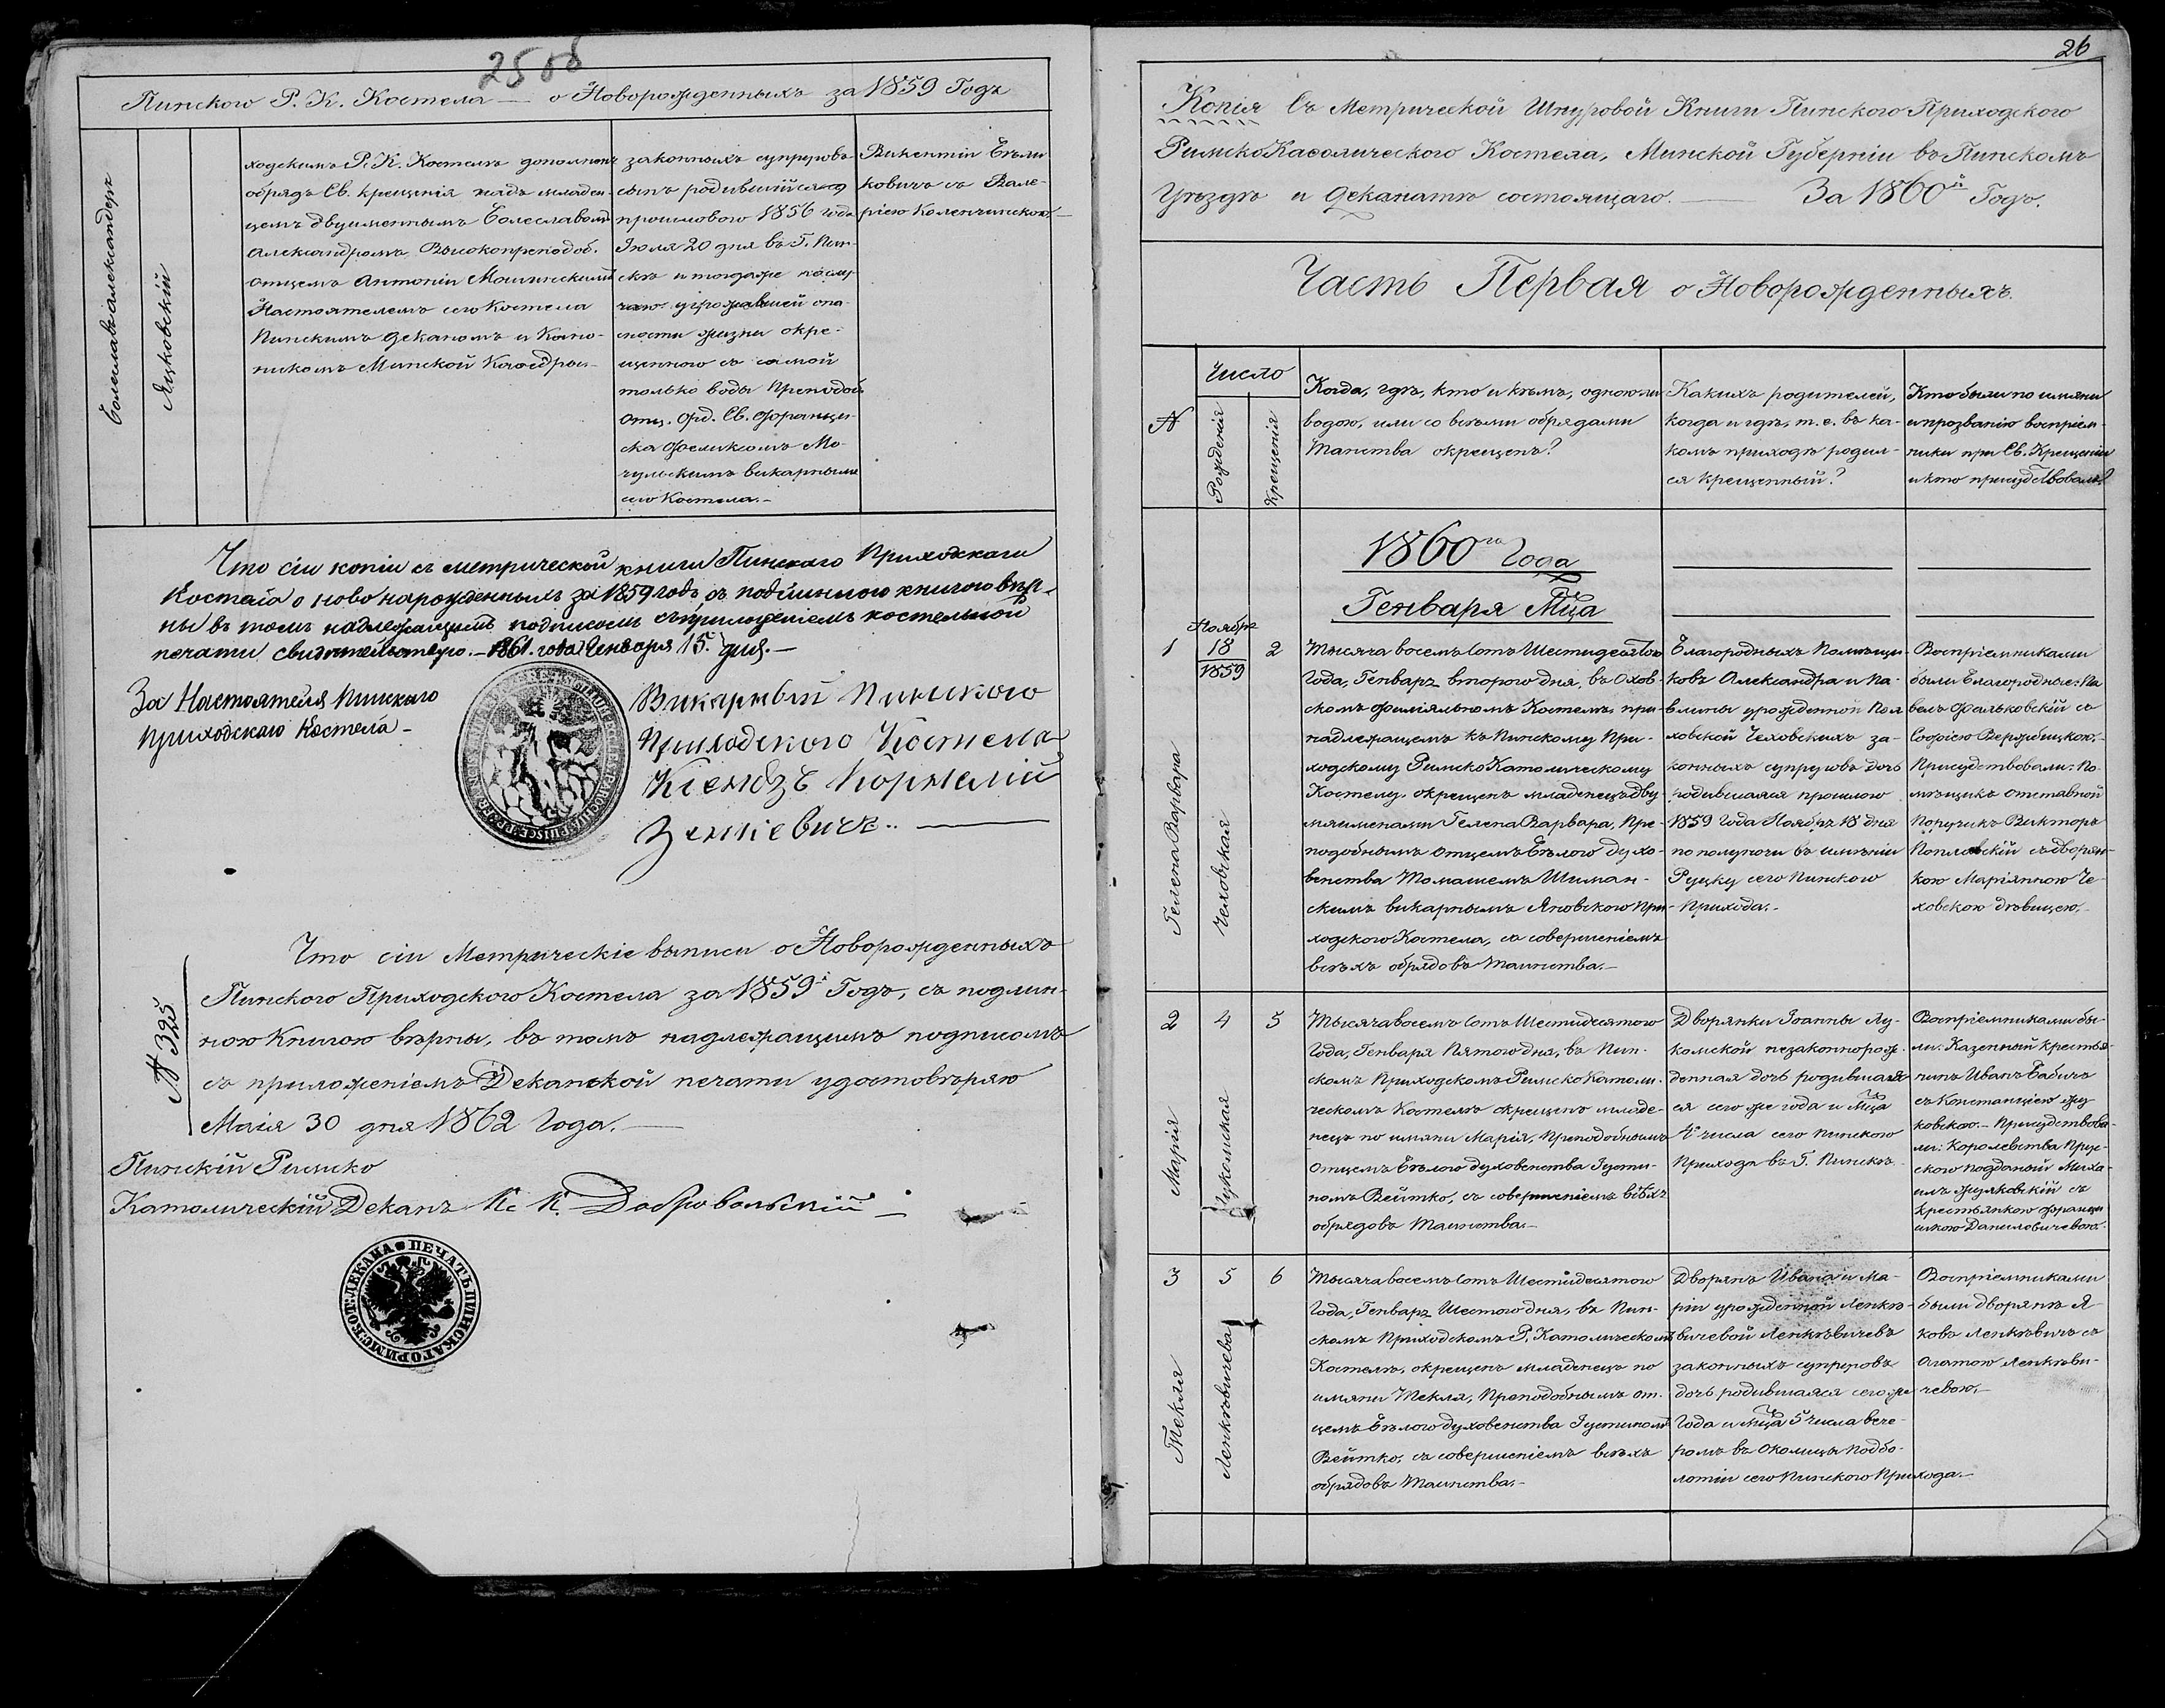 25 об
Пинского Р. К. Костела — о Новорожденныхъ за 1859 Годъ
Болеславъ Александеръ
Яцковскій
ходскимъ Р. К. Костелѣ дополненъ
обрядъ Св. крещенія надъ младен-
цемъ двуименнымъ Болеславомъ
Александромъ Высокопреподоб.
отцемъ Антоніи
Настоятелемъ сего Костела
Пинскимъ Деканомъ и Кано-
никомъ Минской Каѳедры.-
законныхъ супруговъ
сынъ родившійся
прошлового 1856 года
Іюля 20 дня въ Г. Пин-
скѣ и тогдаже по слу-
чаю угрожавшей опа-
сности жизни окре-
щенного съ самой
только воды Преподоб.
Отц. Орд. Св. Францы-
ска Феликсомъ Мо-
чульскимъ викарнымъ
сего Костела.-
Викентіи
ковичъ съ Вале-
ріею Коленчинскою.-
Что сіи копіи съ метрической книги Пинскаго Приходскаги
Костела о ново нарожденныхъ за 1859 годъ, съ подлинною книгою вѣр-
ны въ томъ надлежащимъ подписомъ съ приложеніемъ костельной
печати свидѣтельствую.- 1861. года Генваря 15. дня.-
За Настоятеля Пинскаго
Приходскаго Костела -
Викарный Пинского
Приходского Костела
Ксендзъ Корнелій
Зенкевичъ.. —
№ 325
Что сіи Метрическіе выписи о Новорожденныхъ
Пинского Приходского Костела за 1859й Годъ, съ подлин-
ною Книгою вѣрны, въ томъ надлежащимъ подписомъ
съ приложеніемъ Деканской печати удостовѣряю
Маія 30 дня 1862 Года.—
Пинскій Римско
Католическій Деканъ К. К. Добровольскій
ПЕЧАТЬ ПИНСКАГО РИМСКОКАТ: ДЕКАНА
26
Копія Съ Метрической Шнуровой Книги Пинского Приходского
РимскоКаѳолического Костела, Минской Губерніи въ Пинскомъ
Уѣздѣ и Деканатѣ состоящаго. — За 1860й Годъ.
Часть Первая о Новорожденныхъ.
№
Число
Рожденія
Крещенія
Когда, гдѣ, кто и кѣмъ, одною ли
водою, или со всѣми обрядами
Таинства окрещенъ?
Какихъ родителей,
когда и гдѣ, т. е. въ ка-
комъ приходѣ родил-
ся крещенный?
Кто были по имяни
и прозванію воспріем-
ники при Св. Крещеніи
и кто присудствовалъ?
1860го Года
Генваря Мца
1
Ноября
18
1859
2
Гелена Варвара
Чеховская
Тысяча восемъ Сотъ Шестидесятого
Года, Генваря второго дня, въ Охов-
скомъ Филіяльномъ Костелѣ при-
надлежащемъ къ Пинскому При-
ходскому Римско Католическому
Костелу, окрещенъ младенецъ дву
мя именами Гелена Варвара, Пре-
подобнымъ отцемъ Бѣлого духо-
венства Томашемъ Шиман-
скимъ викарнымъ Яновского При-
ходского Костела, съ совершеніемъ
всѣхъ обрядовъ Таинства.—
Благородныхъ Помѣщи-
ковъ Александра и Па-
влины урожденной Пол
ховской Чеховскихъ за-
конныхъ супруговъ дочь
родившаяся прошлого
1859 Года Ноября 18 дня
по полуночи въ имѣніи
Руцку сего Пинского
Прихода.-
Воспріемниками
были Благородные: Па
велъ Фальковскій съ
Софіею Вержбицкою.-
Присудствовали: По-
мѣщикъ отставной
Поручикъ Викторъ
Поплавскій съ дворян-
кою Маріянною Че-
ховскою дѣвицею.-
2
4
5
Марія
Лукомская
Тысяча восемъ Сотъ Шестидесятого
Года, Генваря Пятого дня, въ Пин-
скомъ Приходскомъ Римско Католи-
ческомъ Костелѣ окрещенъ младе-
нецъ по имяни Марія, Преподобнымъ
Отцемъ Бѣлого духовенства Іусти-
номъ Вейтко, съ совершеніемъ всѣхъ
обрядовъ Таинства.-
Дворянки Іоанны Лу-
комской незаконнорож-
денная дочь родившаяся
ся сего же года и Мца
4 числа сего Пинского
Прихода въ Г. Пинскѣ
Воспріемниками бы-
ли: Казенный крестья-
нинъ Иванъ Бабичъ
съ Констанціею Жу
ковскою.- Присудствова-
ли: Королевства Прус-
ского подданый Миха-
илъ Жуковскій съ
крестьянкою Францы
шкою Даниловичевою.-
3
5
6
Текля
Ленкѣвичева
Тысяча восемъ Сотъ Шестидесятого
Года, Генваря Шестого дня, въ Пин-
скомъ Приходскомъ Р. Католическомъ
Костелѣ, окрещенъ младенецъ по
имяни Текля, Преподобнымъ от-
цемъ Бѣлого духовенства Іустиномъ
Вейтко, съ совершеніемъ всѣхъ
обрядовъ Таинства.-
Дворянъ Ивана и Ма-
ріи урожденной Ленкѣ-
вичевой Ленкѣвичевъ
законныхъ супруговъ
дочь родившаяся сего же
Года и Мца 5 числа вече-
ромъ въ Околицы Подбо-
лотіи сего Пинского Прихода.-
Воспріемниками
были дворянѣ Я
ковъ Ленкѣвичъ съ
Агатою Ленкѣви-
чевою.-